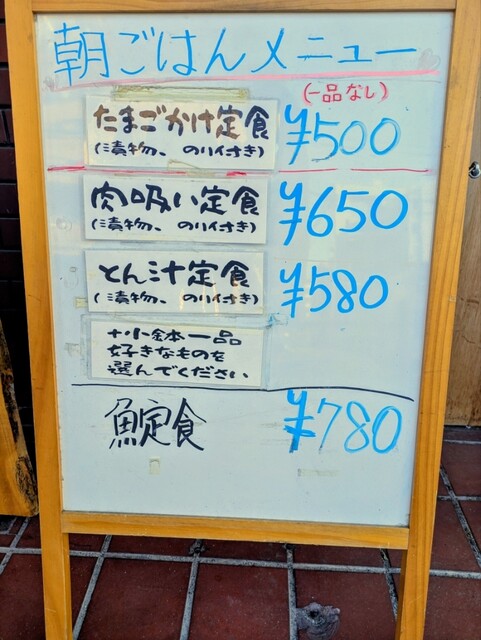 朝ごはんメニュー
(一品なし)
たまごかけ定食 ¥500
(漬物、のり付き)
肉吸い定食 ¥650
(漬物、のり付き)
とん汁定食 ¥580
(漬物、のり付き)
+小鉢一品
好きなものを
選んでください
魚定食 ¥780